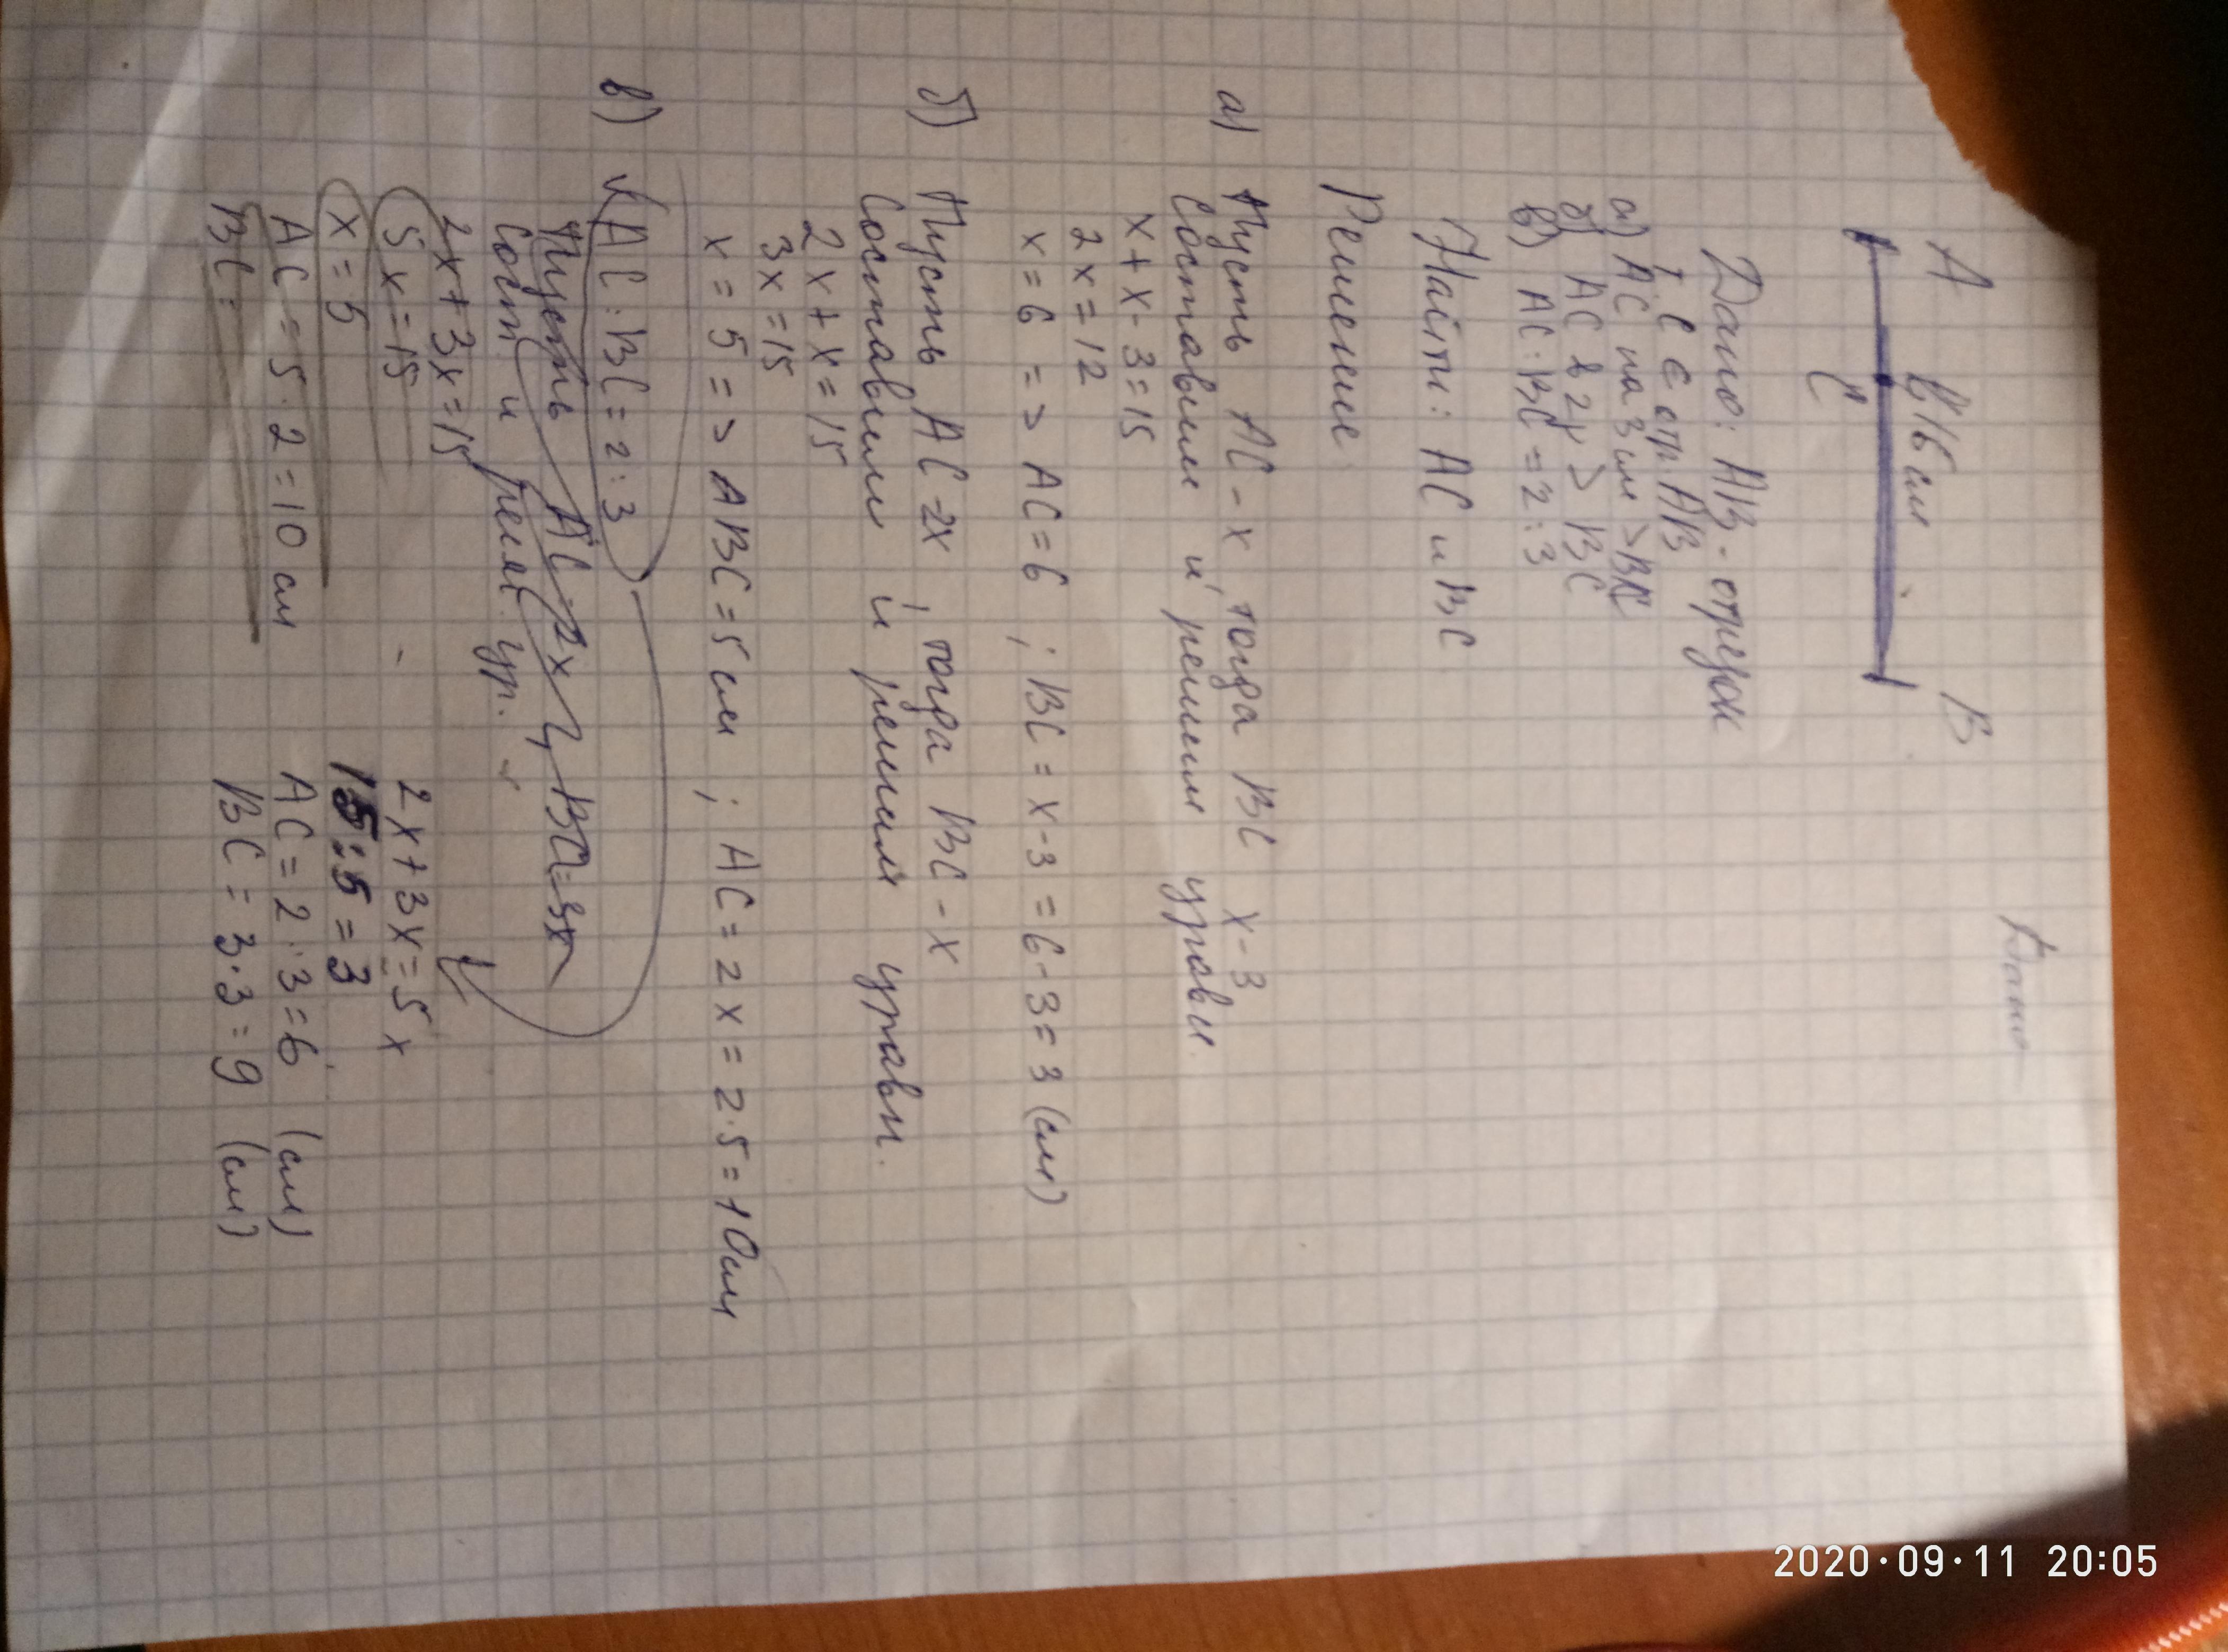 Дано
A В 16 см B
C
Дано: AB - отрезок
т. C ∈ отр. AB
а) AC на 3 см > BC
б) AC в 2 р > BC
в) AC : BC = 2 : 3
Найти: AC и BC
Решение:
а) Пусть AC - x, тогда BC x - 3
Составим и решим уравн.
x + x - 3 = 15
2x = 12
x = 6 => AC = 6 ; BC = x - 3 = 6 - 3 = 3 (см)
б) Пусть AC - 2x, тогда BC - x
Составим и решим уравн.
2x + x = 15
3x = 15
x = 5 => ABC = 5 см ; AC = 2x = 2·5 = 10 см
в) AC : BC = 2 : 3
Пусть AC = 2x, BC = 3x
Сост. и реш. ур.
2x + 3x = 15
5x = 15
x = 5
AC = 5 · 2 = 10 см
BC =
2x + 3x = 5x
15 : 5 = 3
AC = 2 · 3 = 6 (см)
BC = 3 · 3 = 9 (см)
2020·09·11 20:05